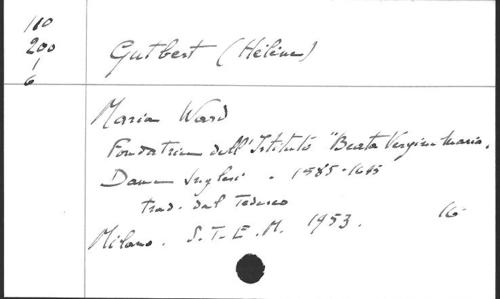 110
200
1
6
Gutbert (Hélène)
Maria Ward
Fondatrice dell'Istituto "Beata Vergine Maria.
Dame Inglesi. 1585-1645
trad. dal Tedesco
Milano. S.T.E.M. 1953. 16